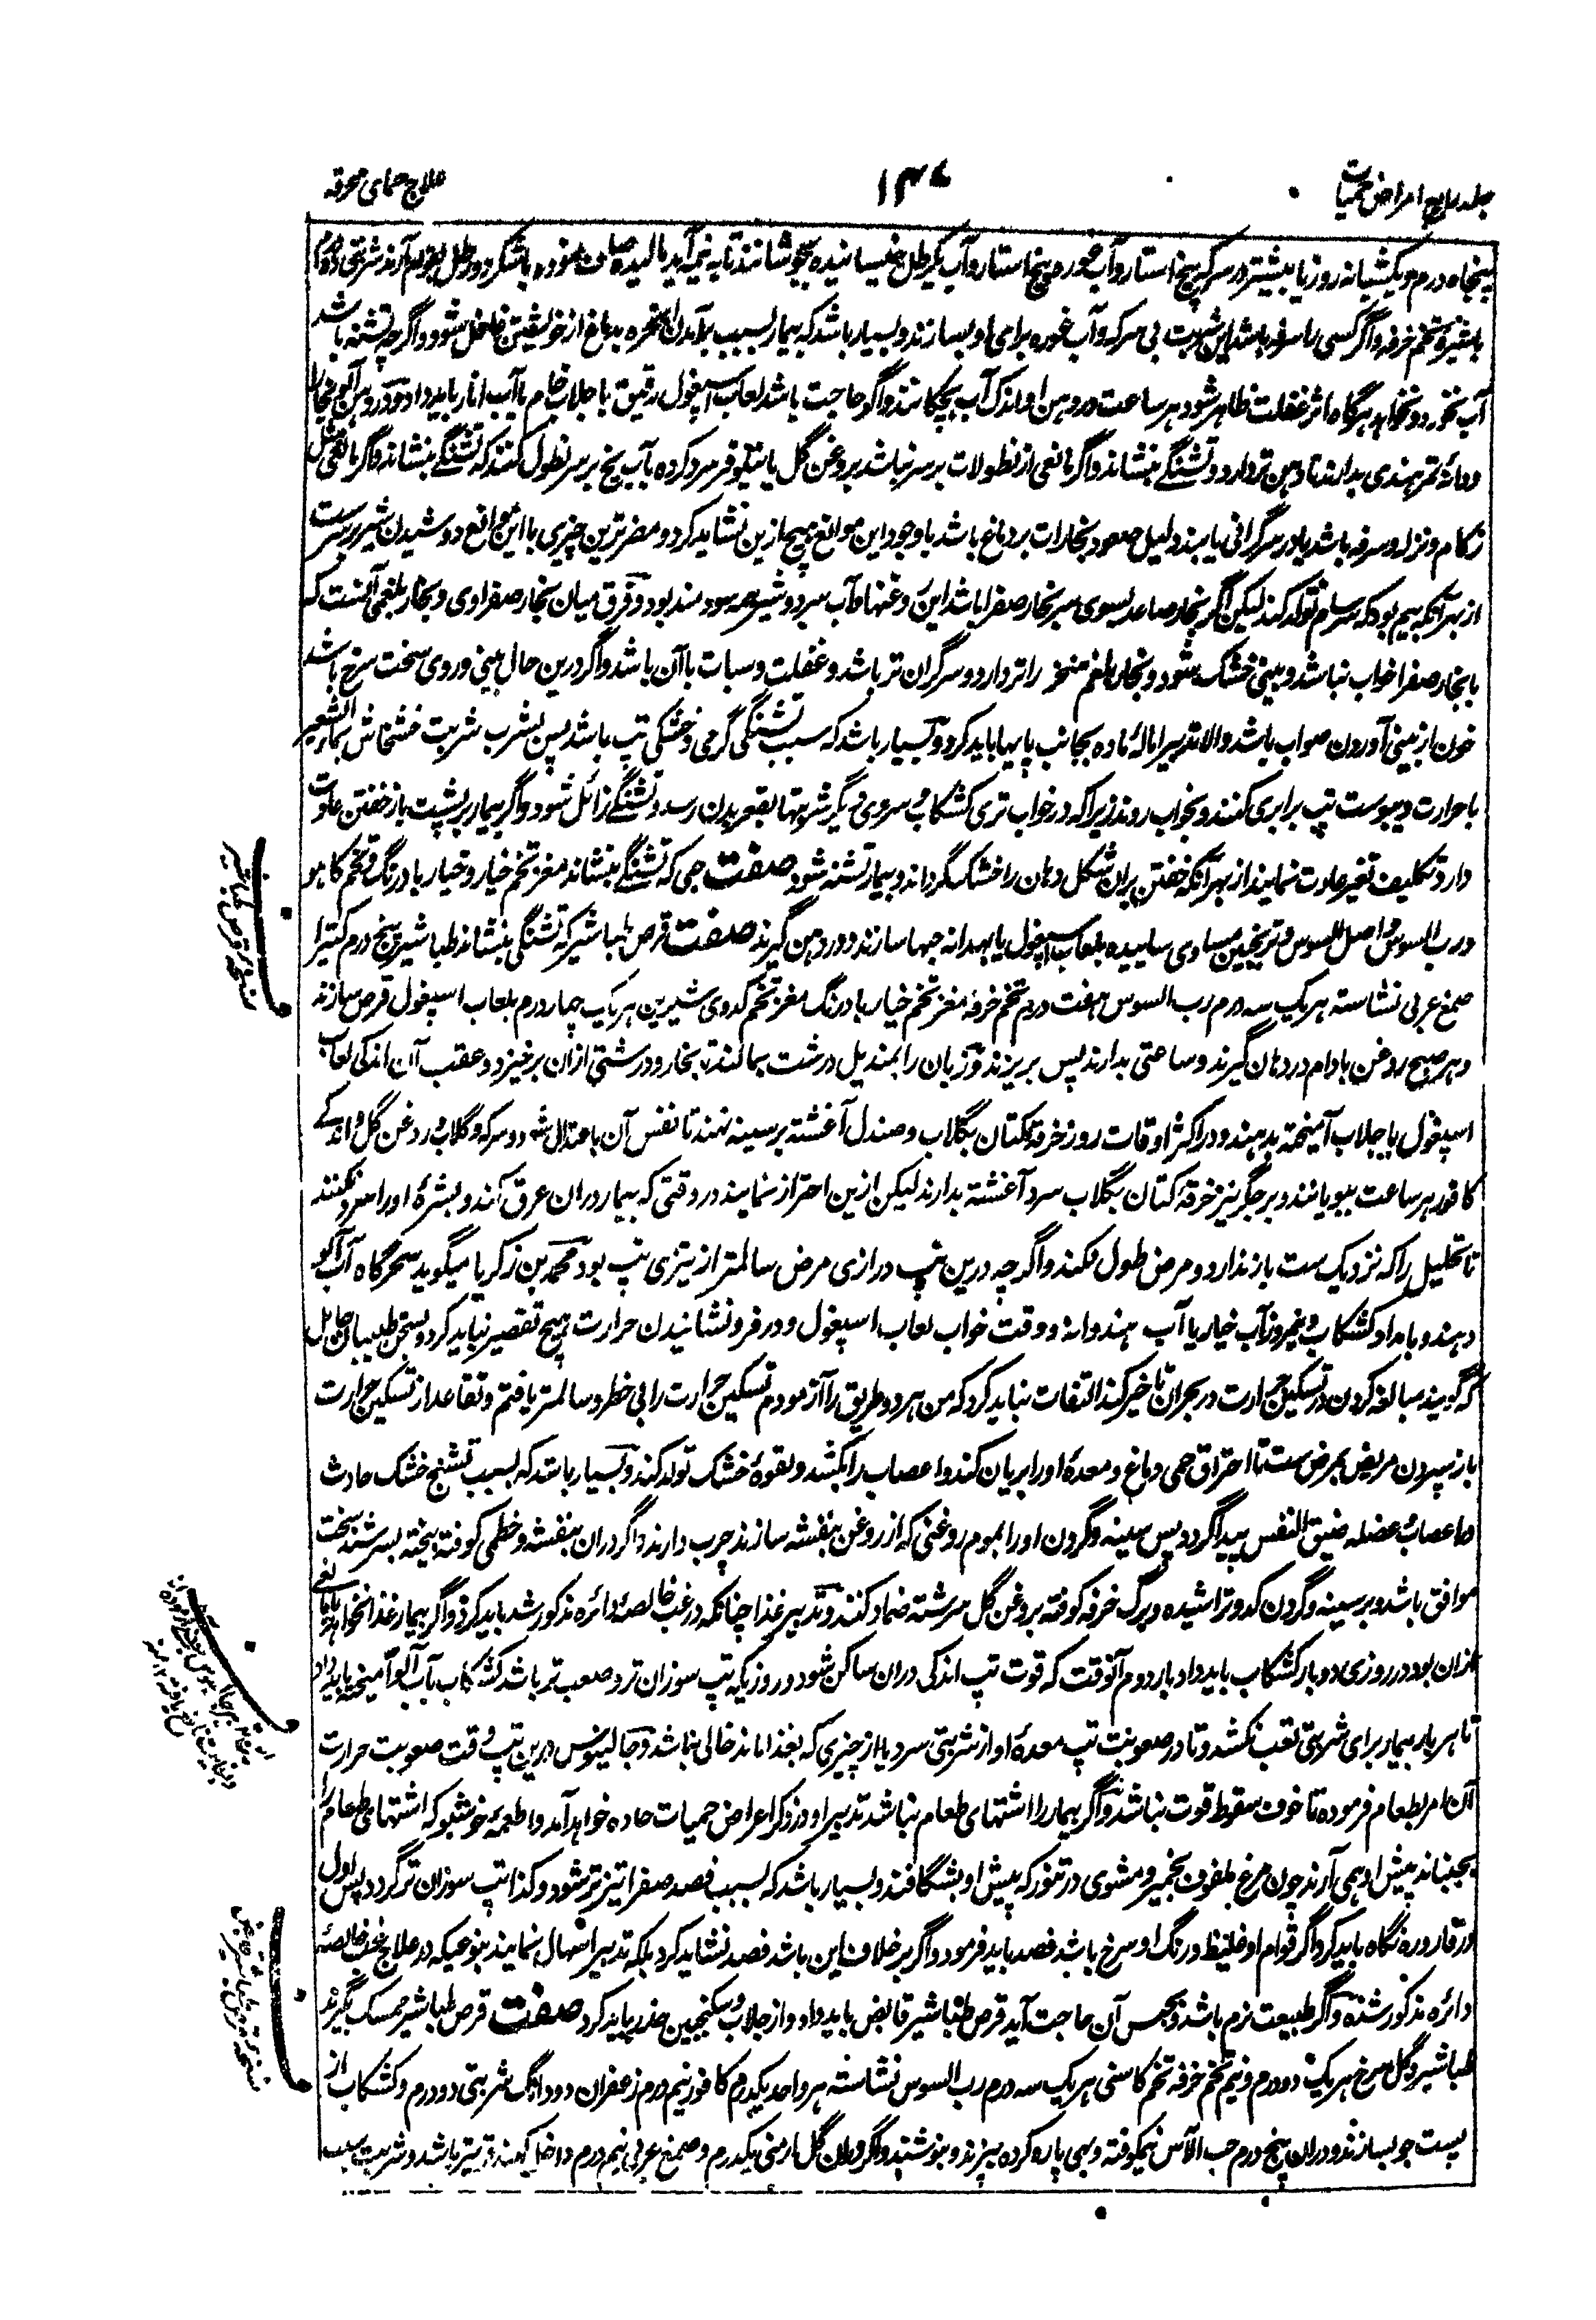 جلد رابع امراض حمیات
۱۳۷
علاج حمای محرقه
پنجاه درم ویکشبانه روز یا بیشتر در سرکه پنج استار و آب غوره پنج استار و آب یکرطل خیسانیده بجوشانند تا به نیمه آید مالیده صاف نموده باشکر دو رطل بقوام آرند شربتی ده درم
باشیرهٔ تخم خرفه واگر کسی را سرفه باشد این شربت بی سرکه وآب غوره برای او بسازند وبسیار باشد که بیمار بسبب برآمدن ابخره بدماغ از خویشتن غافل شود واگرچه تشنه باشد
آب نخورد ونخواهد هرگاه اثر غفلت ظاهر شود هر ساعت در دهن او اندک آب بچکانند واگر حاجت باشد لعاب اسپغول رقیق با جلاب خام یا آب انار باید داد ودر دهن آلوی بخارا
ودانهٔ تمر هندی بدارند تا دهن تر دارد وتشنگی بنشاند واگر مانعی از نطولات بر سر نباشد بروغن گل یا نیلوفر سرد کرده بآب یخ بر سر نطول کنند که تشنگی بنشاند واگر مانعی مثل
زکام ونزله وسرفه باشد یا در سر گرانی یابند ودلیل صعود بخارات بر دماغ باشد با وجود این موانع هیچ ازین نشاید کرد ومضرترین چیزی با این موانع دوشیدن شیر بر سرست
از بهر آنکه بیم بود که سرسام تولد کند لیکن اگر بخار صاعد بسوی سر بخار صفرا باشد این روغنها وآب سرد وشیر همه سودمند بود وفرق میان بخار صفراوی وبخار بلغمی آنست که
با بخار صفرا خواب نباشد وبینی خشک شود وبخار بلغم منخر را تر دارد وسر گران تر باشد وغفلت وسبات با آن باشد واگر درین حال بینی وروی سخت سرخ باشد
خون از بینی آوردن صواب باشد والا تدبیر امالهٔ ماده بجانب پایها باید کرد وبسیار باشد که سبب تشنگی گرمی وخشکی تپ باشد پس بشرب شربت خشخاش بماء الشعیر
با حرارت ویبوست تپ برابری کنند وبخواب روند زیراکه در خواب تری کشکاب وسردی دیگر شربتها بقعر بدن رسد وتشنگی زائل شود واگر بیمار بر پشت باز خفتن عادت
دارد تکلیف تغیر عادت نمایند از بهر آنکه خفتن بران شکل دهان را خشک گرداند وبیمار تشنه شود صفت حبی که تشنگی بنشاند مغز تخم خیار وخیار بادرنگ وتخم کاهو
ورب السوس واصل السوس وترنجبین مساوی ساییده بلعاب اسپغول یا بهدانه حبها سازند ودر دهن گیرند صفت قرص طباشیر که تشنگی بنشاند طباشیر پنج درم کتیرا
صمغ عربی نشاسته هر یک سه درم رب السوس هفت درم تخم خرفه مغز تخم خیار بادرنگ مغز تخم کدوی شیرین هر یک چهار درم بلعاب اسپغول قرص سازند
وهر صبح روغن بادام در دهان گیرند وساعتی بدارند پس بریزند وزبان را بمندیل درشت بمالند تا بخار ودرشتی ازان برخیزد وعقب آن اندکی لعاب
اسپغول با جلاب آمیخته بدهند ودر اکثر اوقات روز خرقهٔ کتان بگلاب وصندل آغشته بر سینه نهند تا نفس آن باعتدال شود وسرکه وگلاب وروغن گل واندکی
کافور هر ساعت ببویانند وبر جگر نیز خرقه کتان بگلاب سرد آغشته بدارند لیکن ازین احتراز نمایند در وقتی که بیمار دران عرق کند وبشرهٔ او را سرد نکنند
تا تحلیل را که نزدیک ست باز ندارد ومرض طول نکند واگرچه درین تپ درازی مرض سالمتر از تیزی تپ بود محمد بن زکریا میگوید سحرگاه آب آلو
دهند وبامداد کشکاب ونیمروز آب خیار یا آب هندوانه ووقت خواب لعاب اسپغول ودر فرونشانیدن حرارت هیچ تقصیر نباید کرد وبسخن طبیبان جاهل
که گویند مبالغه کردن در تسکین حرارت در بحران تاخیر کند التفات نباید کرد که من هر دو طریق را آزمودم تسکین حرارت را بی خطر وسالمتر یافتم وتقاعد از تسکین حرارت
باز سپردن مریض بمرض ست تا احتراق حمی دماغ ومعدهٔ او را بریان کند واعصاب را بکشد ولقوهٔ خشک تولد کند وبسیار باشد که بسبب تشنج خشک حادث
در اعصاب عضله ضیق النفس پیدا گردد پس سینه وگردن او را بموم روغنی که از روغن بنفشه سازند چرب دارند واگر دران بنفشه وخطمی کوفته بیخته بسرشند سخت
موافق باشد وبر سینه وگردن کدو تراشیده وبرگ خرفه کوفته بروغن گل سرشته ضماد کنند وتدبیر غذا چنانکه در غب خالصهٔ دائره مذکور شد باید کرد واگر بیمار غذا نخواهد یا مانعی
ازان بود در روزی دو بار کشکاب باید داد بار دوم آنوقت که قوت تپ اندکی دران ساکن شود ودر روزیکه تپ سوزان تر وصعب تر باشد کشکاب بآب آلو آمیخته باید داد
تا هر بار بیمار برای شربتی تعب نکشد وتا در صعوبت تپ معدهٔ او از شربتی سرد یا از چیزی که بغذا ماند خالی نباشد وجالینوس درین تپ وقت صعوبت حرارت
آن امر بطعام فرموده تا خوف سقوط قوت نباشد واگر بیمار را اشتهای طعام نباشد تدبیر او در ذکر اعراض حمیات حاده خواهد آمد واطعمهٔ خوشبو که اشتهای طعام را
بجنباند پیش او همی آرند چون مرغ ملفوف بخمیر ومشوی در تنور که پیش او بشگافند وبسیار باشد که بسبب فصد صفرا تیزتر شود وکذا تپ سوزان تر گردد پس اول
در قاروره نگاه باید کرد اگر قوام او غلیظ ورنگ او سرخ باشد فصد باید فرمود واگر برخلاف این باشد فصد نشاید کرد بلکه تدبیر اسهال نمایند بنوعیکه در علاج غب خالصهٔ
دائره مذکور شده واگر طبیعت نرم باشد وبحبس آن حاجت آید قرص طباشیر قابض باید داد واز جلاب وسکنجبین حذر باید کرد صفت قرص طباشیر ممسک بگیرند
طباشیر وگل سرخ هر یک دو درم ونیم تخم خرفه تخم کاسنی هر یک سه درم رب السوس نشاسته هر واحد یکدرم کافور نیم درم زعفران دو دانگ شربتی دو درم وکشکاب از
پست جو بسازند ودران پنج درم حب الآس نیمکوفته وبهی پاره کرده بپزند وبنوشند واگر دران گل ارمنی یکدرم وصمغ عربی نیم درم داخل کنند بهتر باشد وشربت سیب
نسخهٔ قرص طباشیر
نسخهٔ قرص طباشیر قابض